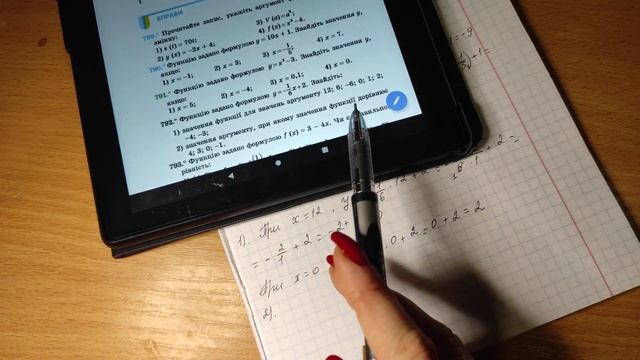 ВПРАВИ
789.° Прочитайте запис, укажіть аргумент
змінну:
1) s (t) = 70t;
3) V (a) = a³;
2) y (x) = –2x + 4;
4) f (x) = x² – 4.
790.° Функцію задано формулою y = 10x + 1. Знайдіть значення y,
якщо:
1) x = –1;
2) x = 3;
3) x = –1/5;
4) x = 7.
791.° Функцію задано формулою y = x² – 3. Знайдіть значення y,
якщо:
1) x = 5;
2) x = –4;
3) x = 0,1;
4) x = 0.
792.° Функцію задано формулою y = –1/6 x + 2. Знайдіть:
1) значення функції для значень аргументу 12; 6; –6; 0; 1; 2;
–4; –3;
2) значення аргументу, при якому значення функції дорівнює
4; 3; 0; –1.
793.° Функцію задано формулою f (x) = 3 – 4x. Чи є
рівність:
1). При x = 12, y
= – 2/1 + 2 = –2+
При x = 0
. 0 + 2 = 0 + 2 = 2
2).